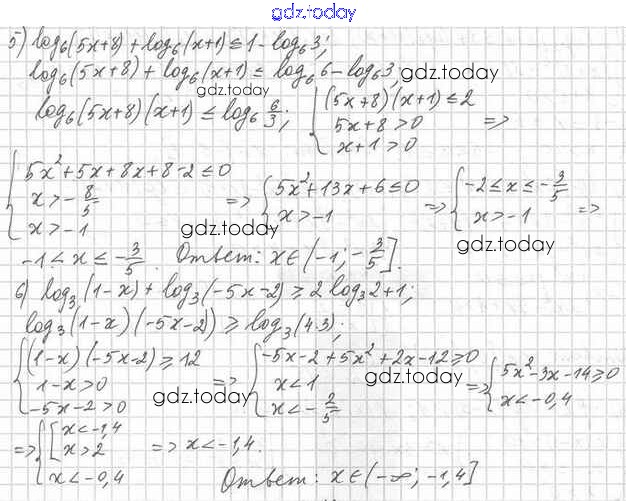 gdz.today
5) log₆(5x+8)+log₆(x+1)≤1-log₆3;
log₆(5x+8)+log₆(x+1)≤log₆6-log₆3;
gdz.today
gdz.today
log₆(5x+8)(x+1)≤log₆ 6/3; { (5x+8)(x+1)≤2
5x+8>0 =>
x+1>0
{ 5x²+5x+8x+8-2≤0
x>-8/5
x>-1
=> { 5x²+13x+6≤0
x>-1
=> { -2≤x≤-3/5
x>-1 =>
gdz.today
gdz.today
-1<x≤-3/5. Ответ: x∈(-1; -3/5].
6) log₃(1-x)+log₃(-5x-2)≥2log₃2+1;
log₃(1-x)(-5x-2))≥log₃(4·3);
{ (1-x)(-5x-2)≥12
1-x>0
-5x-2>0
=> { -5x-2+5x²+2x-12≥0
x<1
x<-2/5
=> { 5x²-3x-14≥0
x<-0,4
gdz.today
gdz.today
=> { [ x<-1,4
x>2
x<-0,4
=> x<-1,4.
Ответ: x∈(-∞; -1,4]